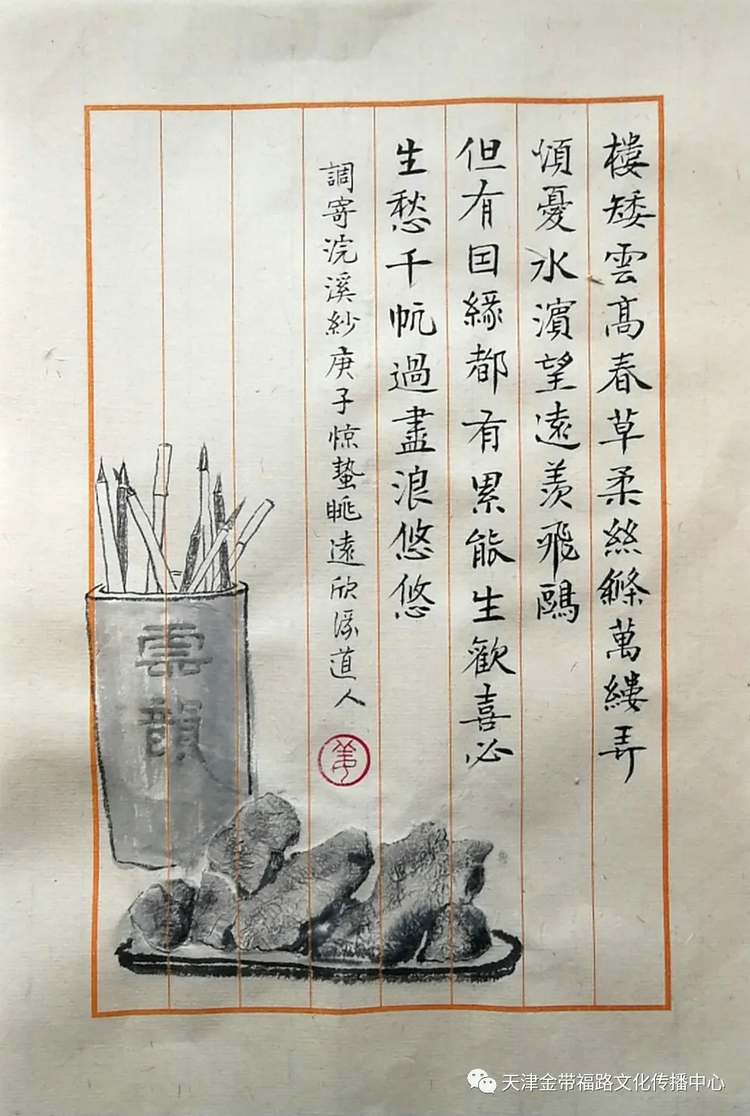 樓矮雲高春草柔絲縧萬縷弄
煩憂水濱望遠羡飛鷗
但有囙緣都有累能生歡喜必
生愁千帆過盡浪悠悠
調寄浣溪紗庚子惊蟄眺遠欣道人
雲韻
天津金带福路文化传播中心